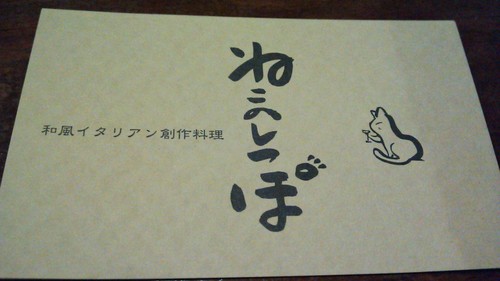 和風イタリアン創作料理
ねこのしっぽ